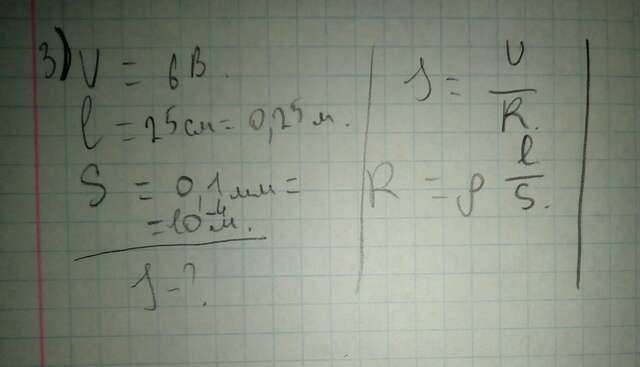 3) U = 6 В.
l = 25 см = 0,25 м.
S = 0,1 мм =
= 10⁻⁴ м.
J - ?
J = U / R.
R = ρ l / S.